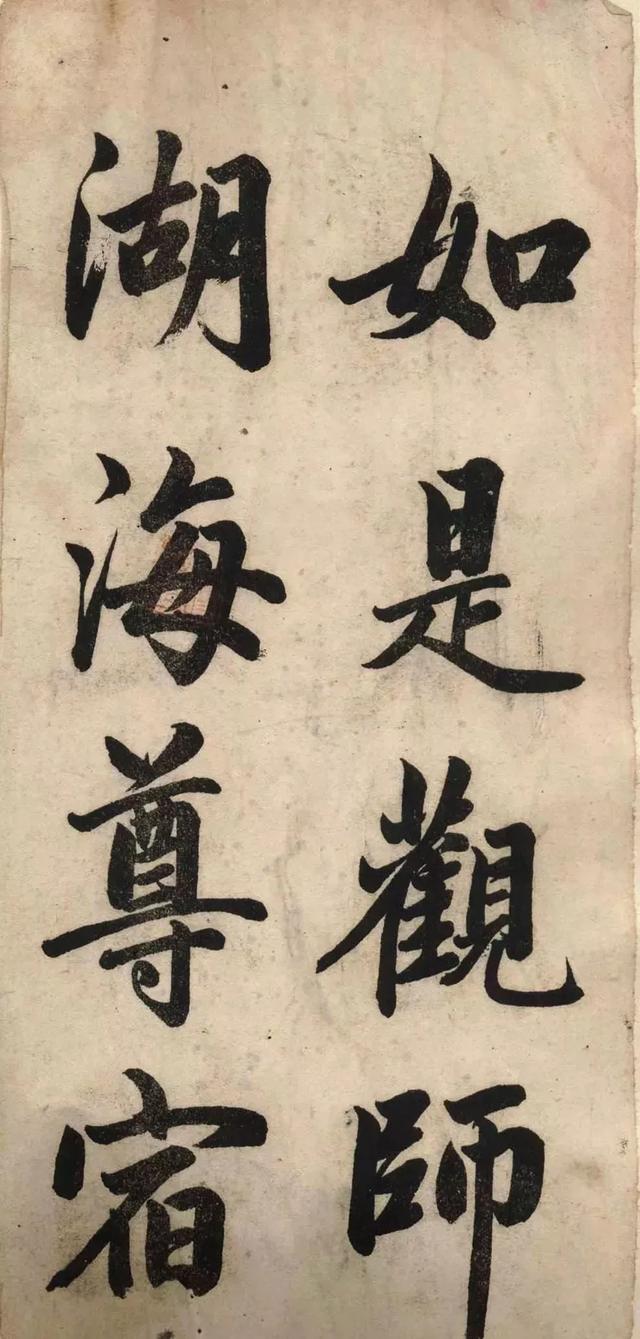 如是觀師
湖海尊宿